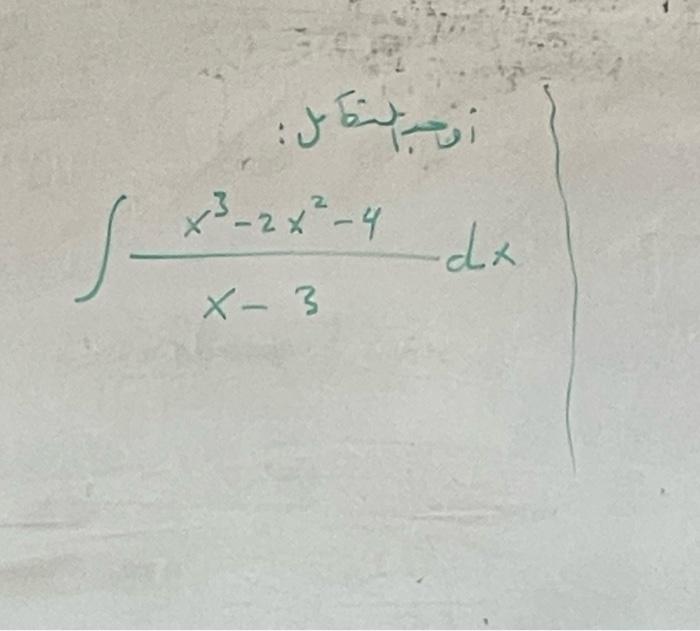 أوجد التكامل :
∫ x³-2x²-4 / x-3 dx